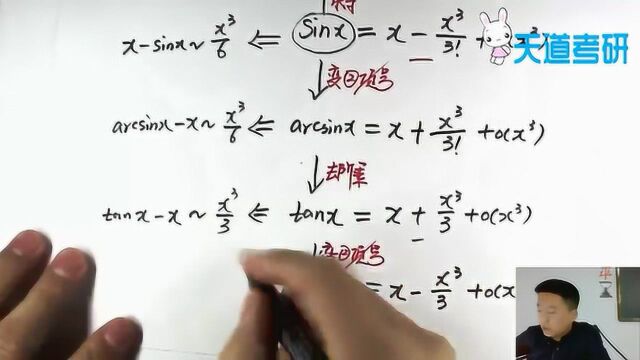 天道考研
x-sinx~x³/6 ⇐ sinx = x - x³/3! + o(x³)
↓变②项号
arcsinx-x~x³/6 ⇐ arcsinx = x + x³/3! + o(x³)
↓去阶乘
tanx-x~x³/3 ⇐ tanx = x + x³/3 + o(x³)
↓变②项号
= x - x³/3 + o(x